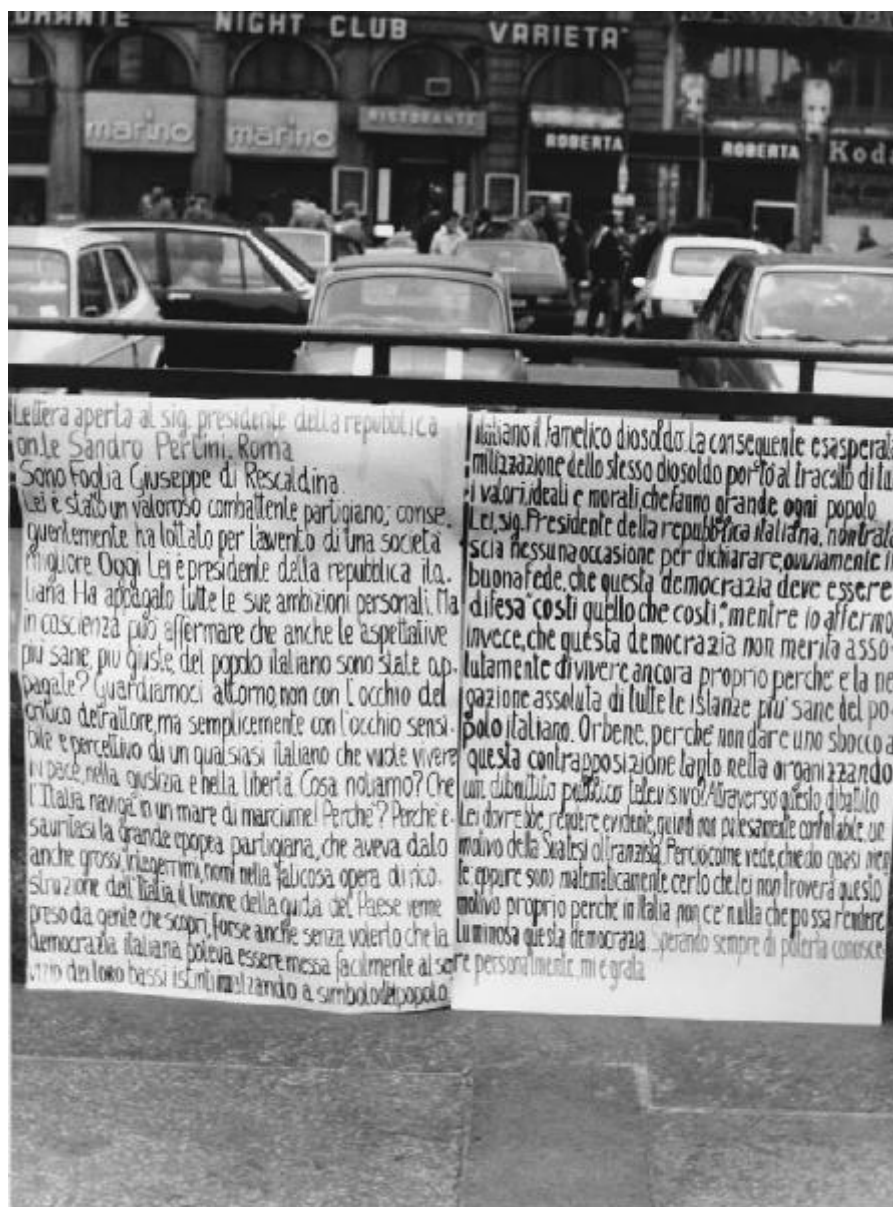 NIGHT CLUB VARIETA'
marino
marino
RISTORANTE
ROBERTA
ROBERTA
Koda
Lettera aperta al sig. presidente della repubblica
on.le Sandro Pertini. Roma
Sono Foglia Giuseppe di Rescaldina
Lei è stato un valoroso combattente partigiano; conse.
guentemente ha lottato per l'avvento di una società
migliore Oggi Lei è presidente della repubblica ita.
liana Ha appagato tutte le sue ambizioni personali. Ma
in coscienza può affermare che anche le aspettative
più sane, più giuste, del popolo italiano sono state ap.
pagate? Guardiamoci attorno, non con l'occhio del
critico detrattore, ma semplicemente con l'occhio sensi.
bile e percettivo di un qualsiasi italiano che vuole vivere
in pace, nella giustizia e nella libertà Cosa notiamo? Che
l'Italia naviga in un mare di marciume! Perchè? Perchè e-
sauritasi la grande epopea partigiana, che aveva dato
anche grossi, integerrimi, nomi nella faticosa opera di rico.
struzione dell'Italia il timone della guida del Paese venne
preso da gente che scoprì, forse anche senza volerlo che la
democrazia italiana poteva essere messa facilmente al ser
vizio dei loro bassi istinti inalzando a simbolo del popolo
italiano il famelico diosoldo. La conseguente esasperata
mitizzazione dello stesso diosoldo portò al tracollo di tu
i valori, ideali e morali, che fanno grande ogni popolo
Lei, sig. Presidente della repubblica italiana, non trala
scia nessuna occasione per dichiarare, ovviamente in
buona fede, che questa democrazia deve essere
difesa "costi quello che costi", mentre io affermo,
invece, che questa democrazia non merita asso-
lutamente di vivere ancora proprio perchè è la ne
gazione assoluta di tutte le istanze più sane del po
polo italiano. Orbene, perchè non dare uno sbocco a
questa contrapposizione tanto netta organizzando
un dibattito pubblico televisivo? Attraverso questo dibattito
Lei dovrebbe, rendere evidente, quindi non palesamente confutabile, un
motivo della Sua tesi oltranzista. Perciò come vede, chiedo quasi nien
te eppure sono matematicamente certo che lei non troverà questo
motivo proprio perchè in Italia non c'è nulla che possa rendere
luminosa questa democrazia Sperando sempre di poterla conosce
re personalmente, mi è grata